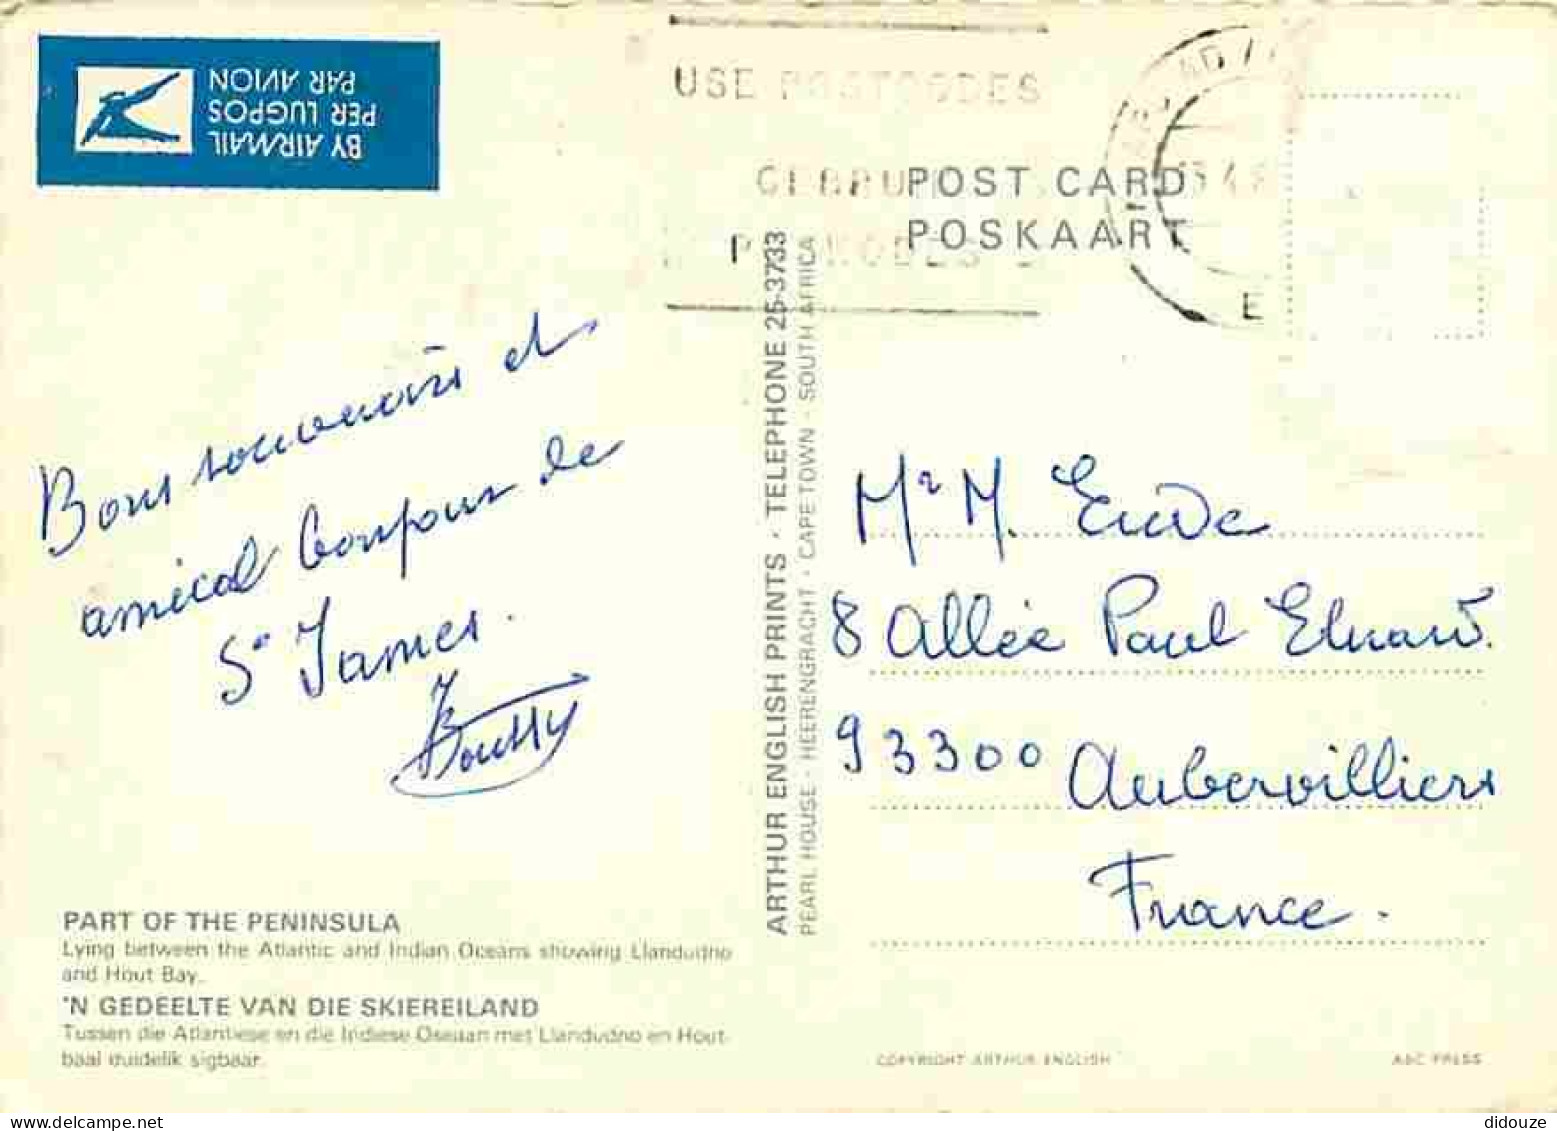 BY AIRMAIL
PER LUGPOS
PAR AVION
USE POSTCODES
POST CARD
POSKAART
E
Bons souvenirs et
amical bonjour de
St James.
ARTHUR ENGLISH PRINTS · TELEPHONE 25-3733
PEARL HOUSE · HEERENGRACHT · CAPE TOWN · SOUTH AFRICA
Mr M.
8 Allée Paul Eluard.
93300 Aubervilliers
France.
PART OF THE PENINSULA
Lying between the Atlantic and Indian Oceans showing Llandudno
and Hout Bay.
'N GEDEELTE VAN DIE SKIEREILAND
Tussen die Atlantiese en die Indiese Oseaan met Llandudno en Hout-
baai duidelik sigbaar.
COPYRIGHT ARTHUR ENGLISH
ABC PRESS
didouze